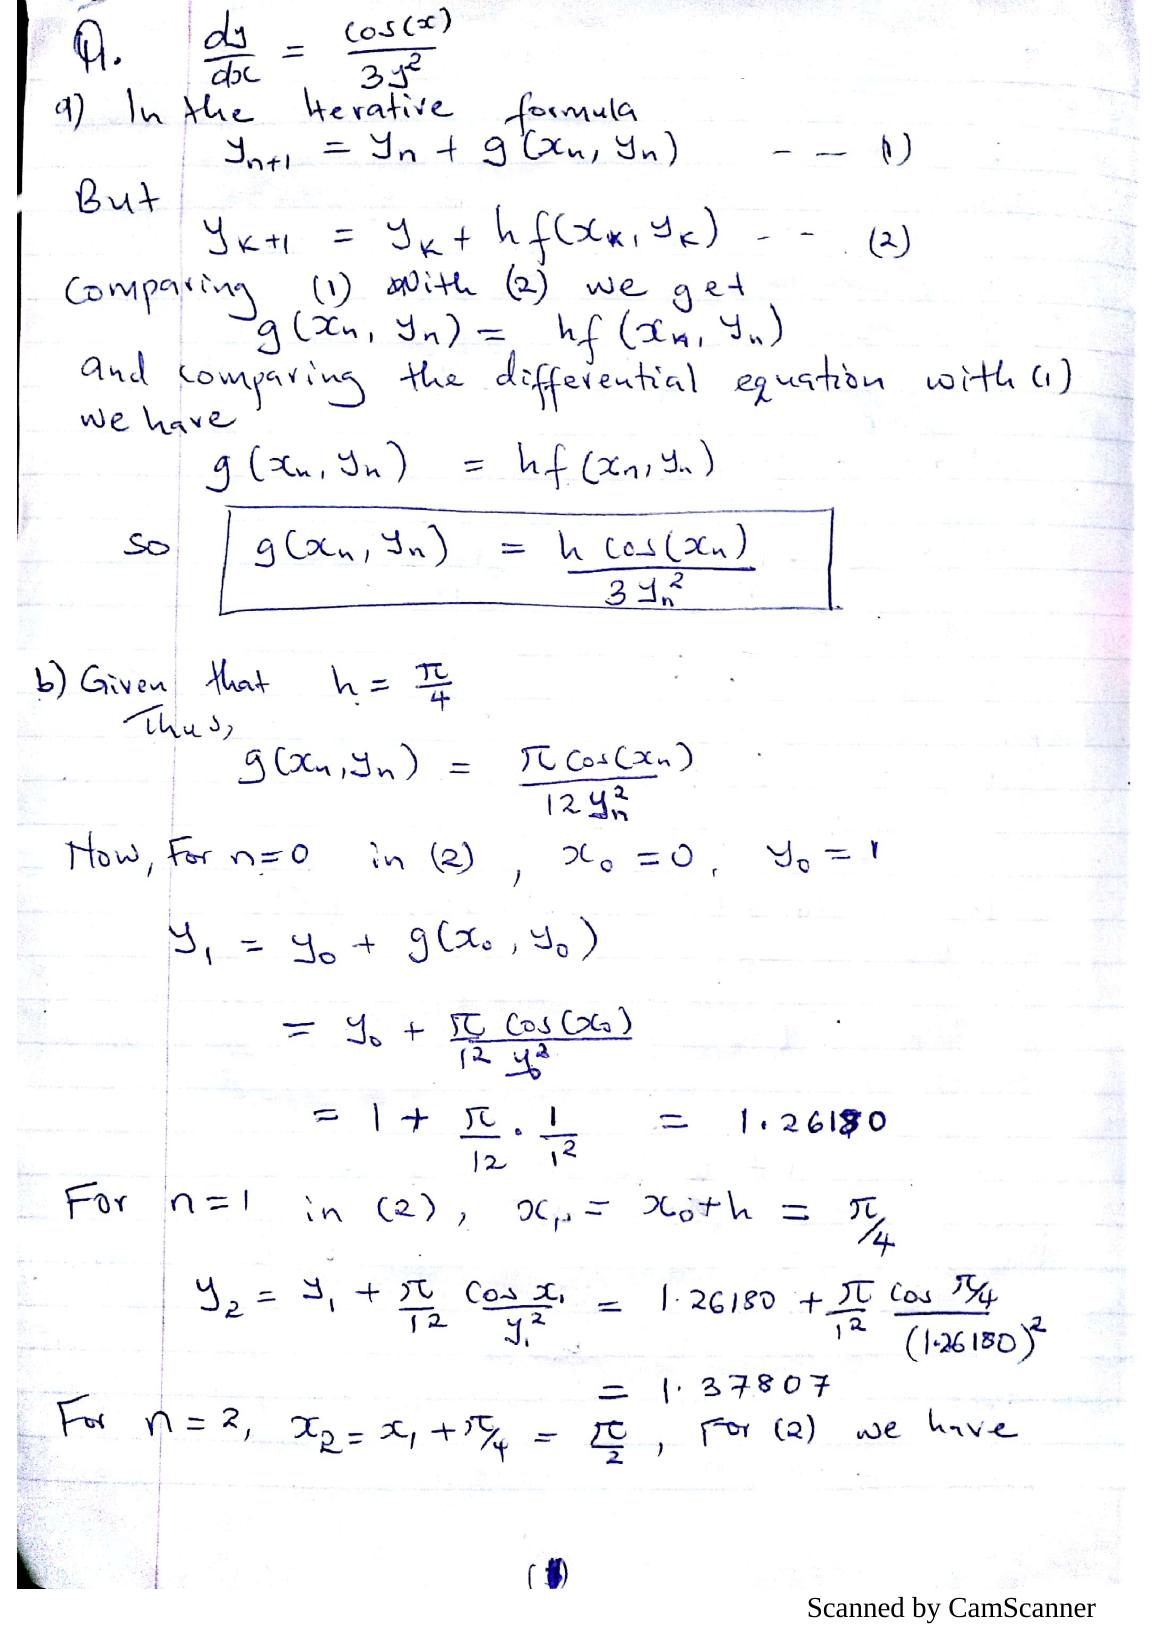 Q. dy/dx = cos(x)/3y²
a) In the Iterative formula
yn+1 = yn + g(xn, yn) - - - 1)
But
yK+1 = yK + h f(xK, yK) - - (2)
Comparing (1) with (2) we get
g(xn, yn) = hf(xn, yn)
and comparing the differential equation with (1)
we have
g(xn, yn) = hf(xn, yn)
so g(xn, yn) = h cos(xn)/3yn²
b) Given that h = π/4
Thus,
g(xn, yn) = π cos(xn)/12 yn²
Now, For n=0 in (2), x0 = 0, y0 = 1
y1 = y0 + g(x0, y0)
= y0 + π cos(x0)/12 y0²
= 1 + π/12 · 1/1² = 1.26180
For n=1 in (2), x1 = x0+h = π/4
y2 = y1 + π/12 cos x1/y1² = 1.26180 + π/12 cos π/4/(1.26180)²
= 1.37807
For n = 2, x2 = x1 + π/4 = π/2, For (2) we have
Scanned by CamScanner